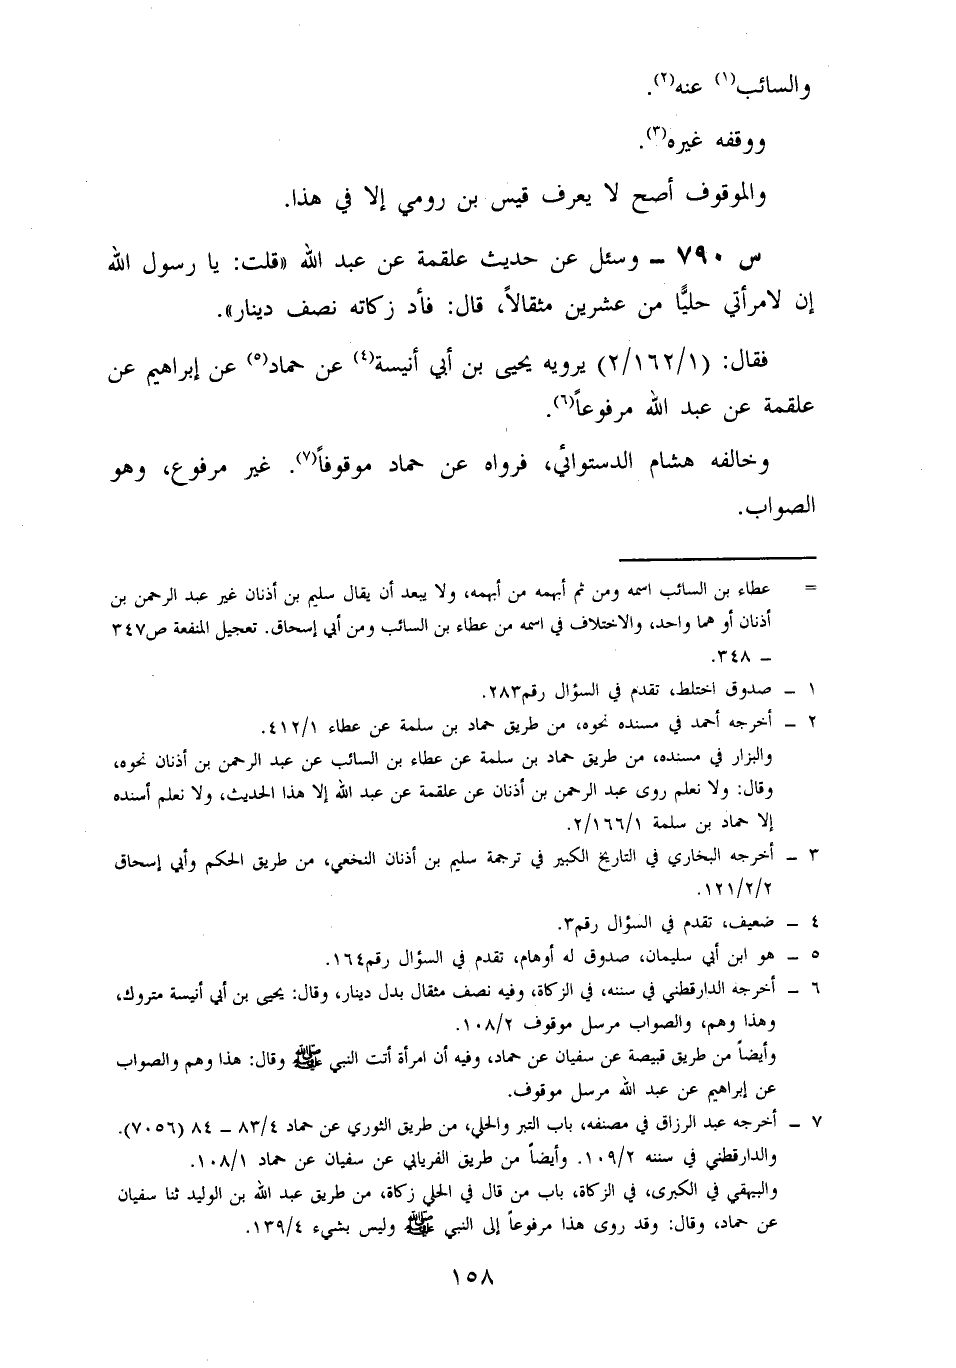 والسائب(١) عنه(٢).
ووقفه غيره(٣).
والموقوف أصح لا يعرف قيس بن رومي إلا في هذا.
س ٧٩٠ ــ وسئل عن حديث علقمة عن عبد الله «قلت: يا رسول الله
إن لامرأتي حليًّا من عشرين مثقالاً، قال: فأد زكاته نصف دينار».
فقال: (٢/١٦٢/١) يرويه يحيى بن أبي أنيسة(٤) عن حماد(٥) عن إبراهيم عن
علقمة عن عبد الله مرفوعاً(٦).
وخالفه هشام الدستوائي، فرواه عن حماد موقوفاً(٧). غير مرفوع، وهو
الصواب.
= عطاء بن السائب اسمه ومن ثم أبهمه من أبهمه، ولا يبعد أن يقال سليم بن أذنان غير عبد الرحمن بن
أذنان أو هما واحد، والاختلاف في اسمه من عطاء بن السائب ومن أبي إسحاق. تعجيل المنفعة ص٣٤٧
ــ ٣٤٨.
١ ــ صدوق اختلط، تقدم في السؤال رقم٢٨٣.
٢ ــ أخرجه أحمد في مسنده نحوه، من طريق حماد بن سلمة عن عطاء ٤١٢/١.
والبزار في مسنده، من طريق حماد بن سلمة عن عطاء بن السائب عن عبد الرحمن بن أذنان نحوه،
وقال: ولا نعلم روى عبد الرحمن بن أذنان عن علقمة عن عبد الله إلا هذا الحديث، ولا نعلم أسنده
إلا حماد بن سلمة ٢/١٦٦/١.
٣ ــ أخرجه البخاري في التاريخ الكبير في ترجمة سليم بن أذنان النخعي، من طريق الحكم وأبي إسحاق
١٢١/٢/٢.
٤ ــ ضعيف، تقدم في السؤال رقم٣.
٥ ــ هو ابن أبي سليمان، صدوق له أوهام، تقدم في السؤال رقم١٦٤.
٦ ــ أخرجه الدارقطني في سننه، في الزكاة، وفيه نصف مثقال بدل دينار، وقال: يحيى بن أبي أنيسة متروك،
وهذا وهم، والصواب مرسل موقوف ١٠٨/٢.
وأيضاً من طريق قبيصة عن سفيان عن حماد، وفيه أن امرأة أتت النبي ﷺ وقال: هذا وهم والصواب
عن إبراهيم عن عبد الله مرسل موقوف.
٧ ــ أخرجه عبد الرزاق في مصنفه، باب التبر والحلي، من طريق الثوري عن حماد ٨٣/٤ ــ ٨٤ (٧٠٥٦).
والدارقطني في سننه ١٠٩/٢. وأيضاً من طريق الفريابي عن سفيان عن حماد ١٠٨/١.
والبيهقي في الكبرى، في الزكاة، باب من قال في الحلي زكاة، من طريق عبد الله بن الوليد ثنا سفيان
عن حماد، وقال: وقد روى هذا مرفوعاً إلى النبي ﷺ وليس بشيء ١٣٩/٤.
١٥٨